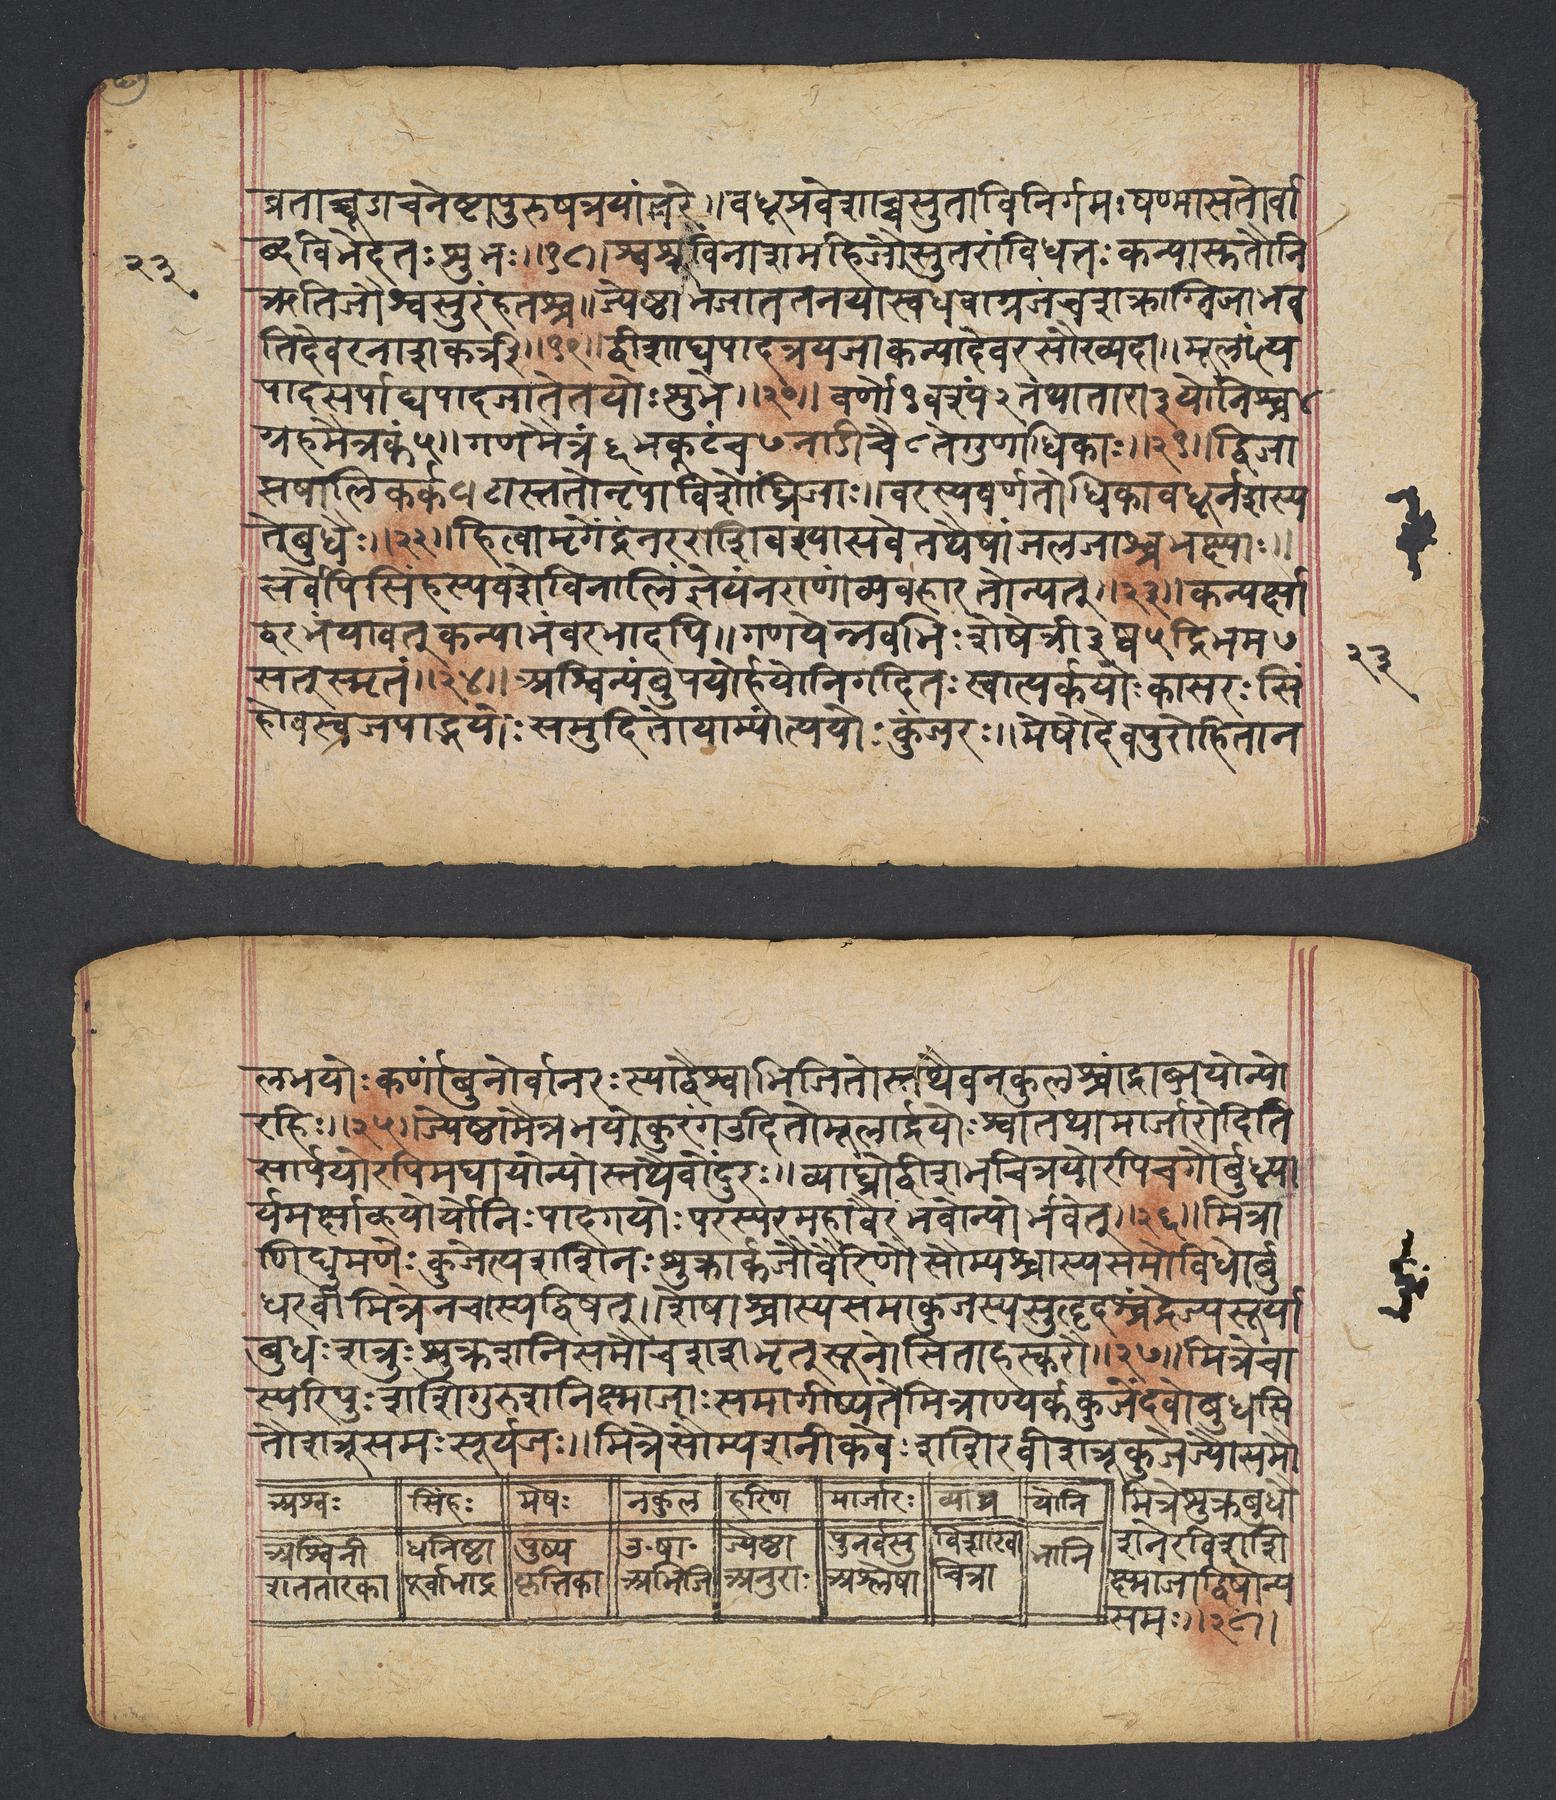 व्रताच्चूडाचनेष्टापुरुषत्रयांतरे॥वधूप्रवेशाच्चसुताविनिर्गमःषण्मासतोर्वा
ब्दविभेदतःशुभः॥१८॥श्वश्रूविनाशमहिजौसुतरांविधत्तःकन्यासुतौनि
२३
ऋतिजौश्वसुरंहतश्च॥ज्येष्ठाभजाततनयास्वधवाग्रजंचशक्राग्निजाभव
तिदेवरनाशकर्त्री॥१९॥द्वीशाद्यपादत्रयजाकन्यादेवरसौख्यदा॥मूलांत्य
पादसर्पाद्यपादजातेतयोःशुभे॥२०॥वर्णो१वश्यं२तथातारा३योनिश्च४
ग्रहमैत्रकं५॥गणमैत्रं६भकूटंच७नाडीचै८तेगुणाधिकाः॥२१॥द्विजा
झषालिकर्कटास्ततोनृपाविशोंघ्रिजाः॥वरस्यवर्णतोधिकावधूर्नशस्य
तेबुधैः॥२२॥हित्वामृगेंद्रंनरराशिवश्यासर्वेतथैषांजलजाश्चभक्ष्याः॥
सर्वेपिसिंहस्यवशेविनालिंज्ञेयंनराणांव्यवहारतोन्यत्॥२३॥कन्यर्क्षा
द्वरभंयावत्कन्याभंवरभादपि॥गणयेन्नवभिःशेषेत्री३ष्व५द्रिभम७
२३
सत्स्मृतं॥२४॥अश्विन्यंबुपयोर्हयोनिगदितःस्वात्यर्कयोःकासरःसिं
होवस्वजपाद्भयोःसमुदितोयाम्यांत्ययोःकुंजरः॥मेषोदेवपुरोहितान
लभयोःकर्णांबुनोर्वानरःस्याद्वैश्वाभिजितोस्तथैवनकुलश्चांद्राब्जयोन्यो
रहिः॥२५॥ज्येष्ठामैत्रभयोकुरंगउदितोमूलार्द्रयोःश्वातथामार्जारोदिति
सार्पयोरपिमघायोन्योस्तथैवोंदुरः॥व्याघ्रोद्वीशभचित्रयोरपिचगौर्बुध्न्या
र्यमर्क्षाकयोर्योनिःपादगयोःपरस्परमहावैरंभवोन्योर्भवेत्॥२६॥मित्रा
णिद्युमणेःकुजेत्यशशिनःशुक्रार्कजौवैरिणौसौम्यश्चास्यसमोविधोर्बु
धरवीमित्रेनचास्यद्विषत्॥शेषाश्चास्यसमाकुजस्यसुहृदश्चंद्रेज्यसूर्या
बुधःशत्रुःशुक्रशनिसमौचशशभृत्सूनोसिताहस्करौ॥२७॥मित्रेचा
स्यरिपुःशशिगुरुशनिक्ष्माजाःसमागीष्पतेमित्राण्यर्ककुजेंदवोबुधसि
तौशत्रूसमःसूर्यजः॥मित्रेसौम्यशनीकवेःशशिरवीशत्रूकुजेज्यौसमौ
अश्वः सिंहः मेषः नकुल हरिण मार्जारः व्याघ्र योनि मित्रेशुक्रबुधौ
अश्विनी धनिष्ठा पुष्य उ॰षा॰ ज्येष्ठा पुनर्वसु विशाखा भानि शनेरविशशि
शततारका पूर्वाभाद्र कृत्तिका अभिजि अनुराः अश्लेषा चित्रा क्ष्माजाद्विषोन्य
समः॥२८॥